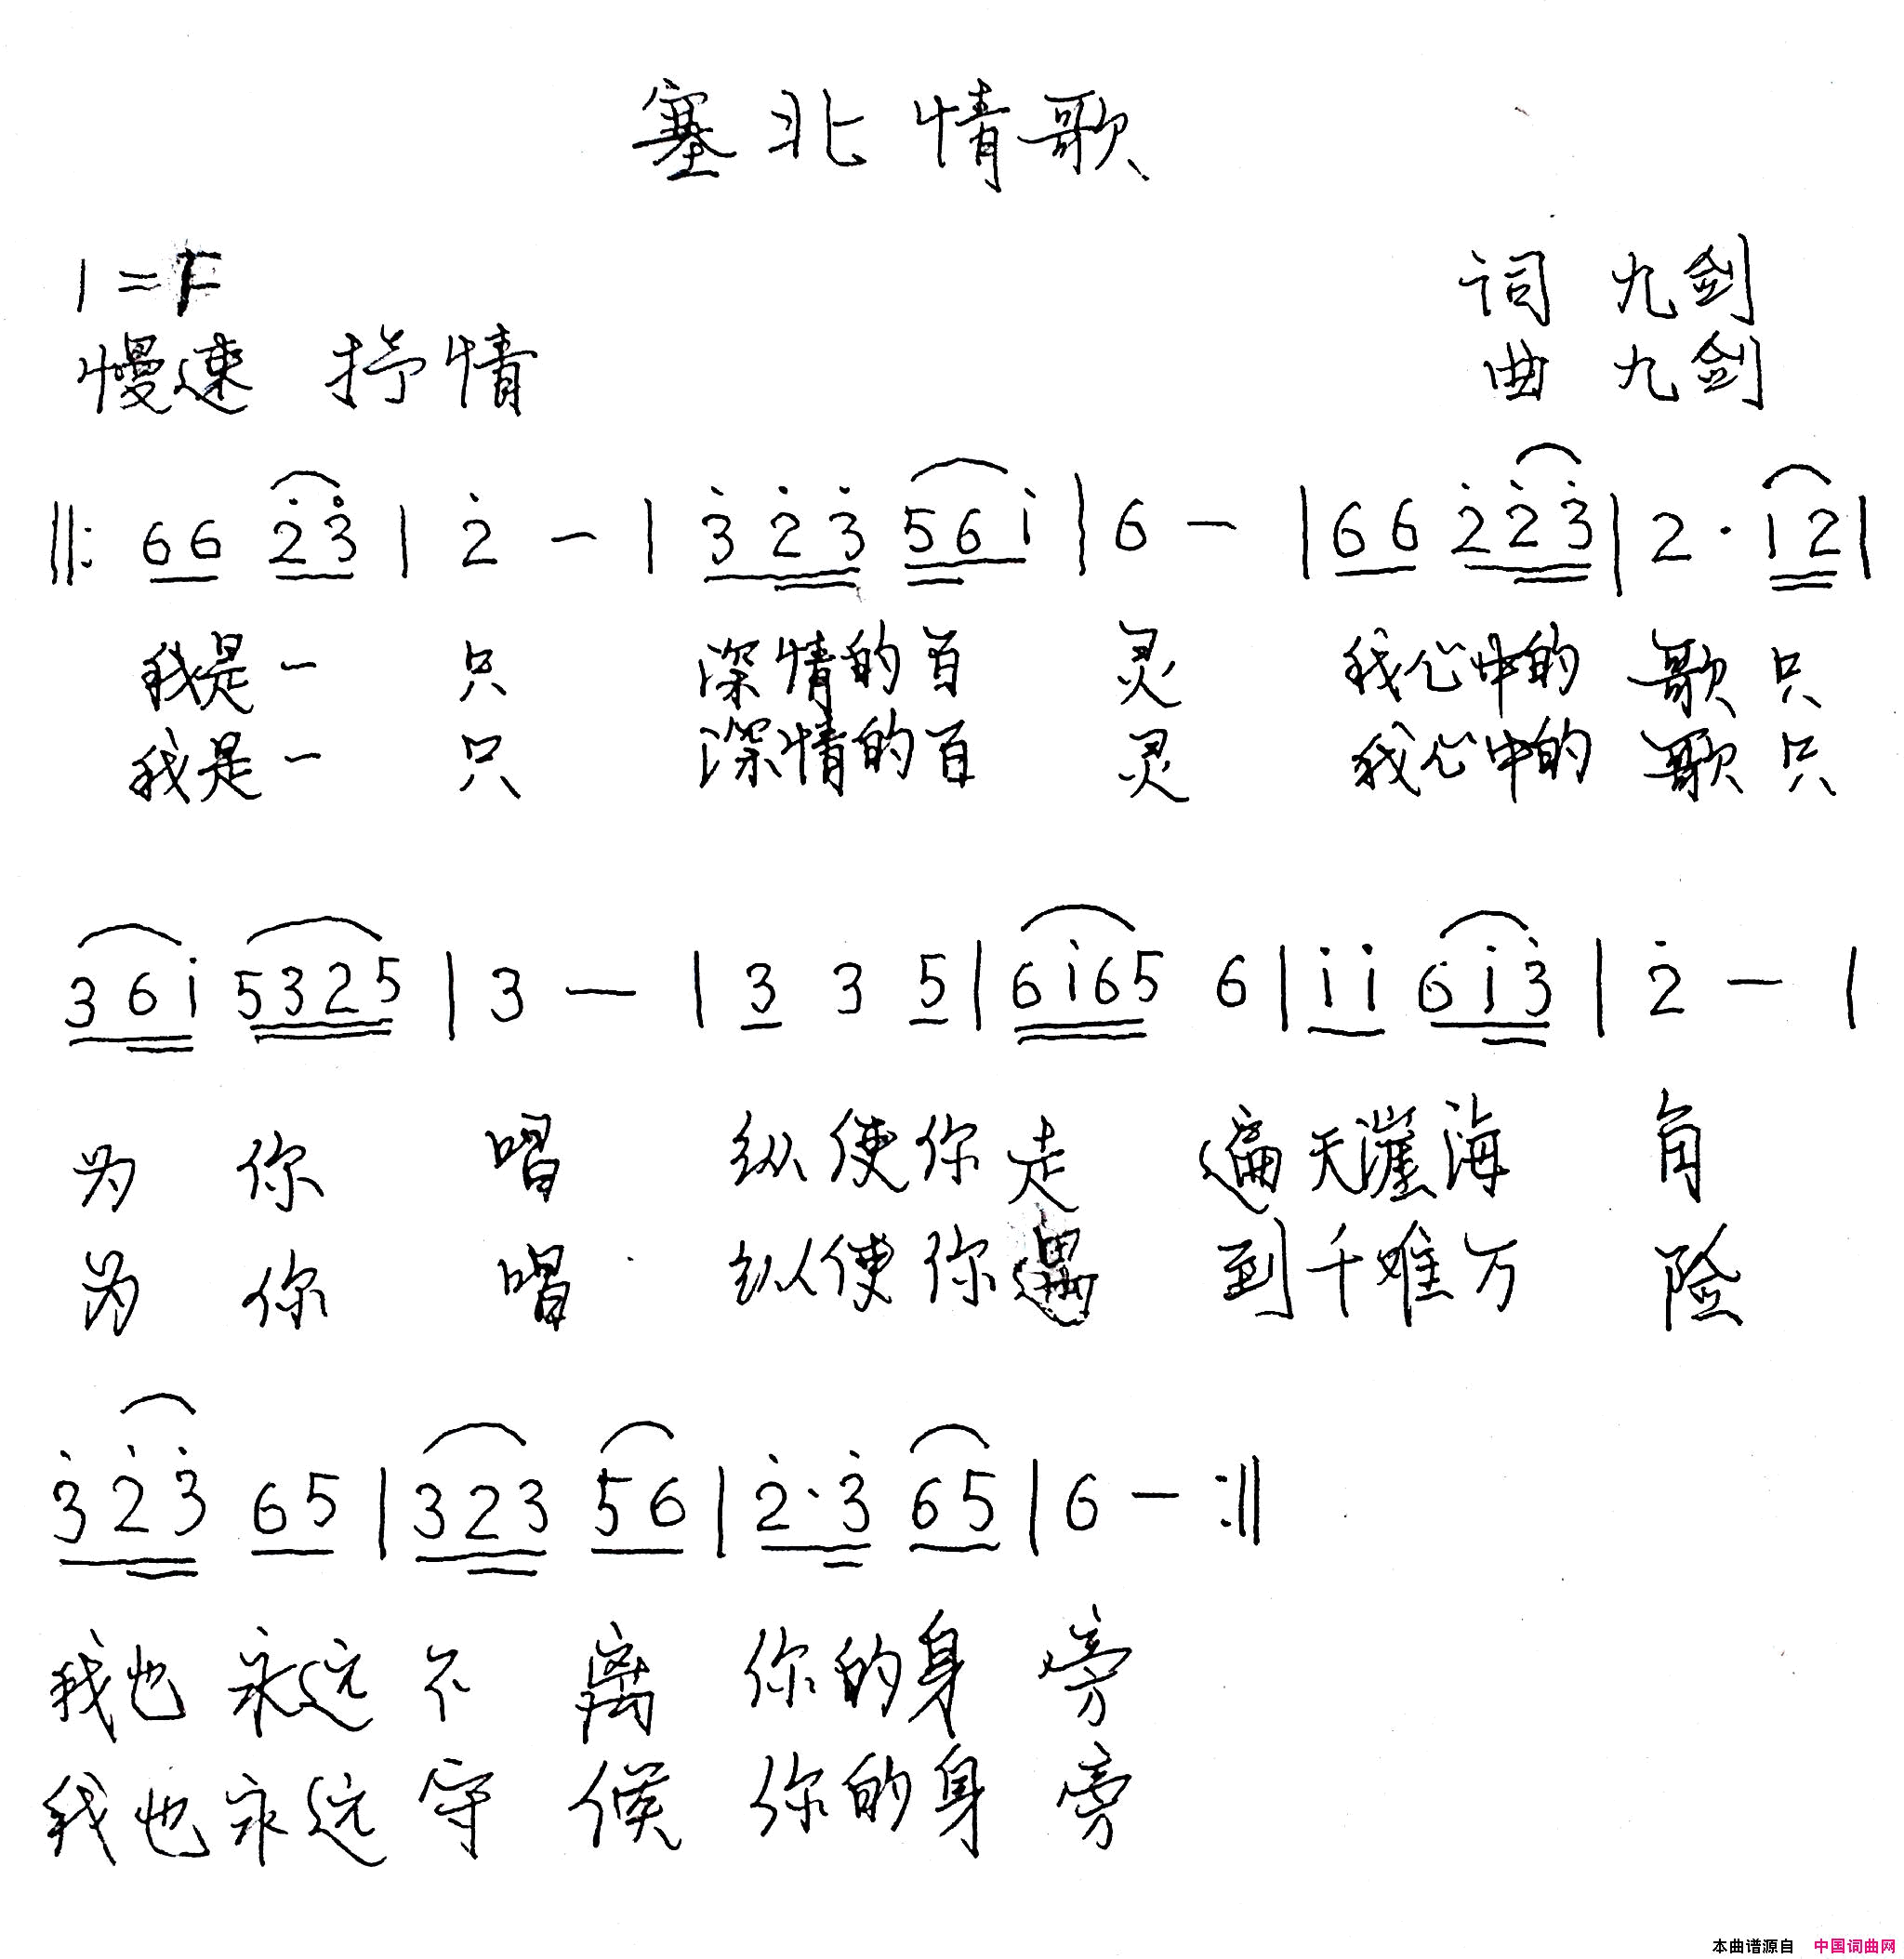 塞北情歌
1=F
词 九剑
慢速 抒情
曲 九剑
‖: 66 2̇3̇ | 2̇ － | 3̇2̇3̇ 561̇ | 6 － | 66 2̇2̇3̇ | 2 · 1̇2 |
我是一 只 深情的百 灵 我心中的 歌 只
我是一 只 深情的百 灵 我心中的 歌 只
361̇ 5325 | 3 — | 3 3 5 | 61̇65 6 | 1̇1̇ 61̇3̇ | 2̇ － |
为 你 唱 纵使你走 遍天涯海 角
为 你 唱 纵使你遇 到千难万 险
3̇2̇3̇ 65 | 323 56 | 2̇·3̇ 65 | 6 － :‖
我也 永远 不 离 你的身 旁
我也 永远 守 候 你的身 旁
本曲谱源自 中国词曲网